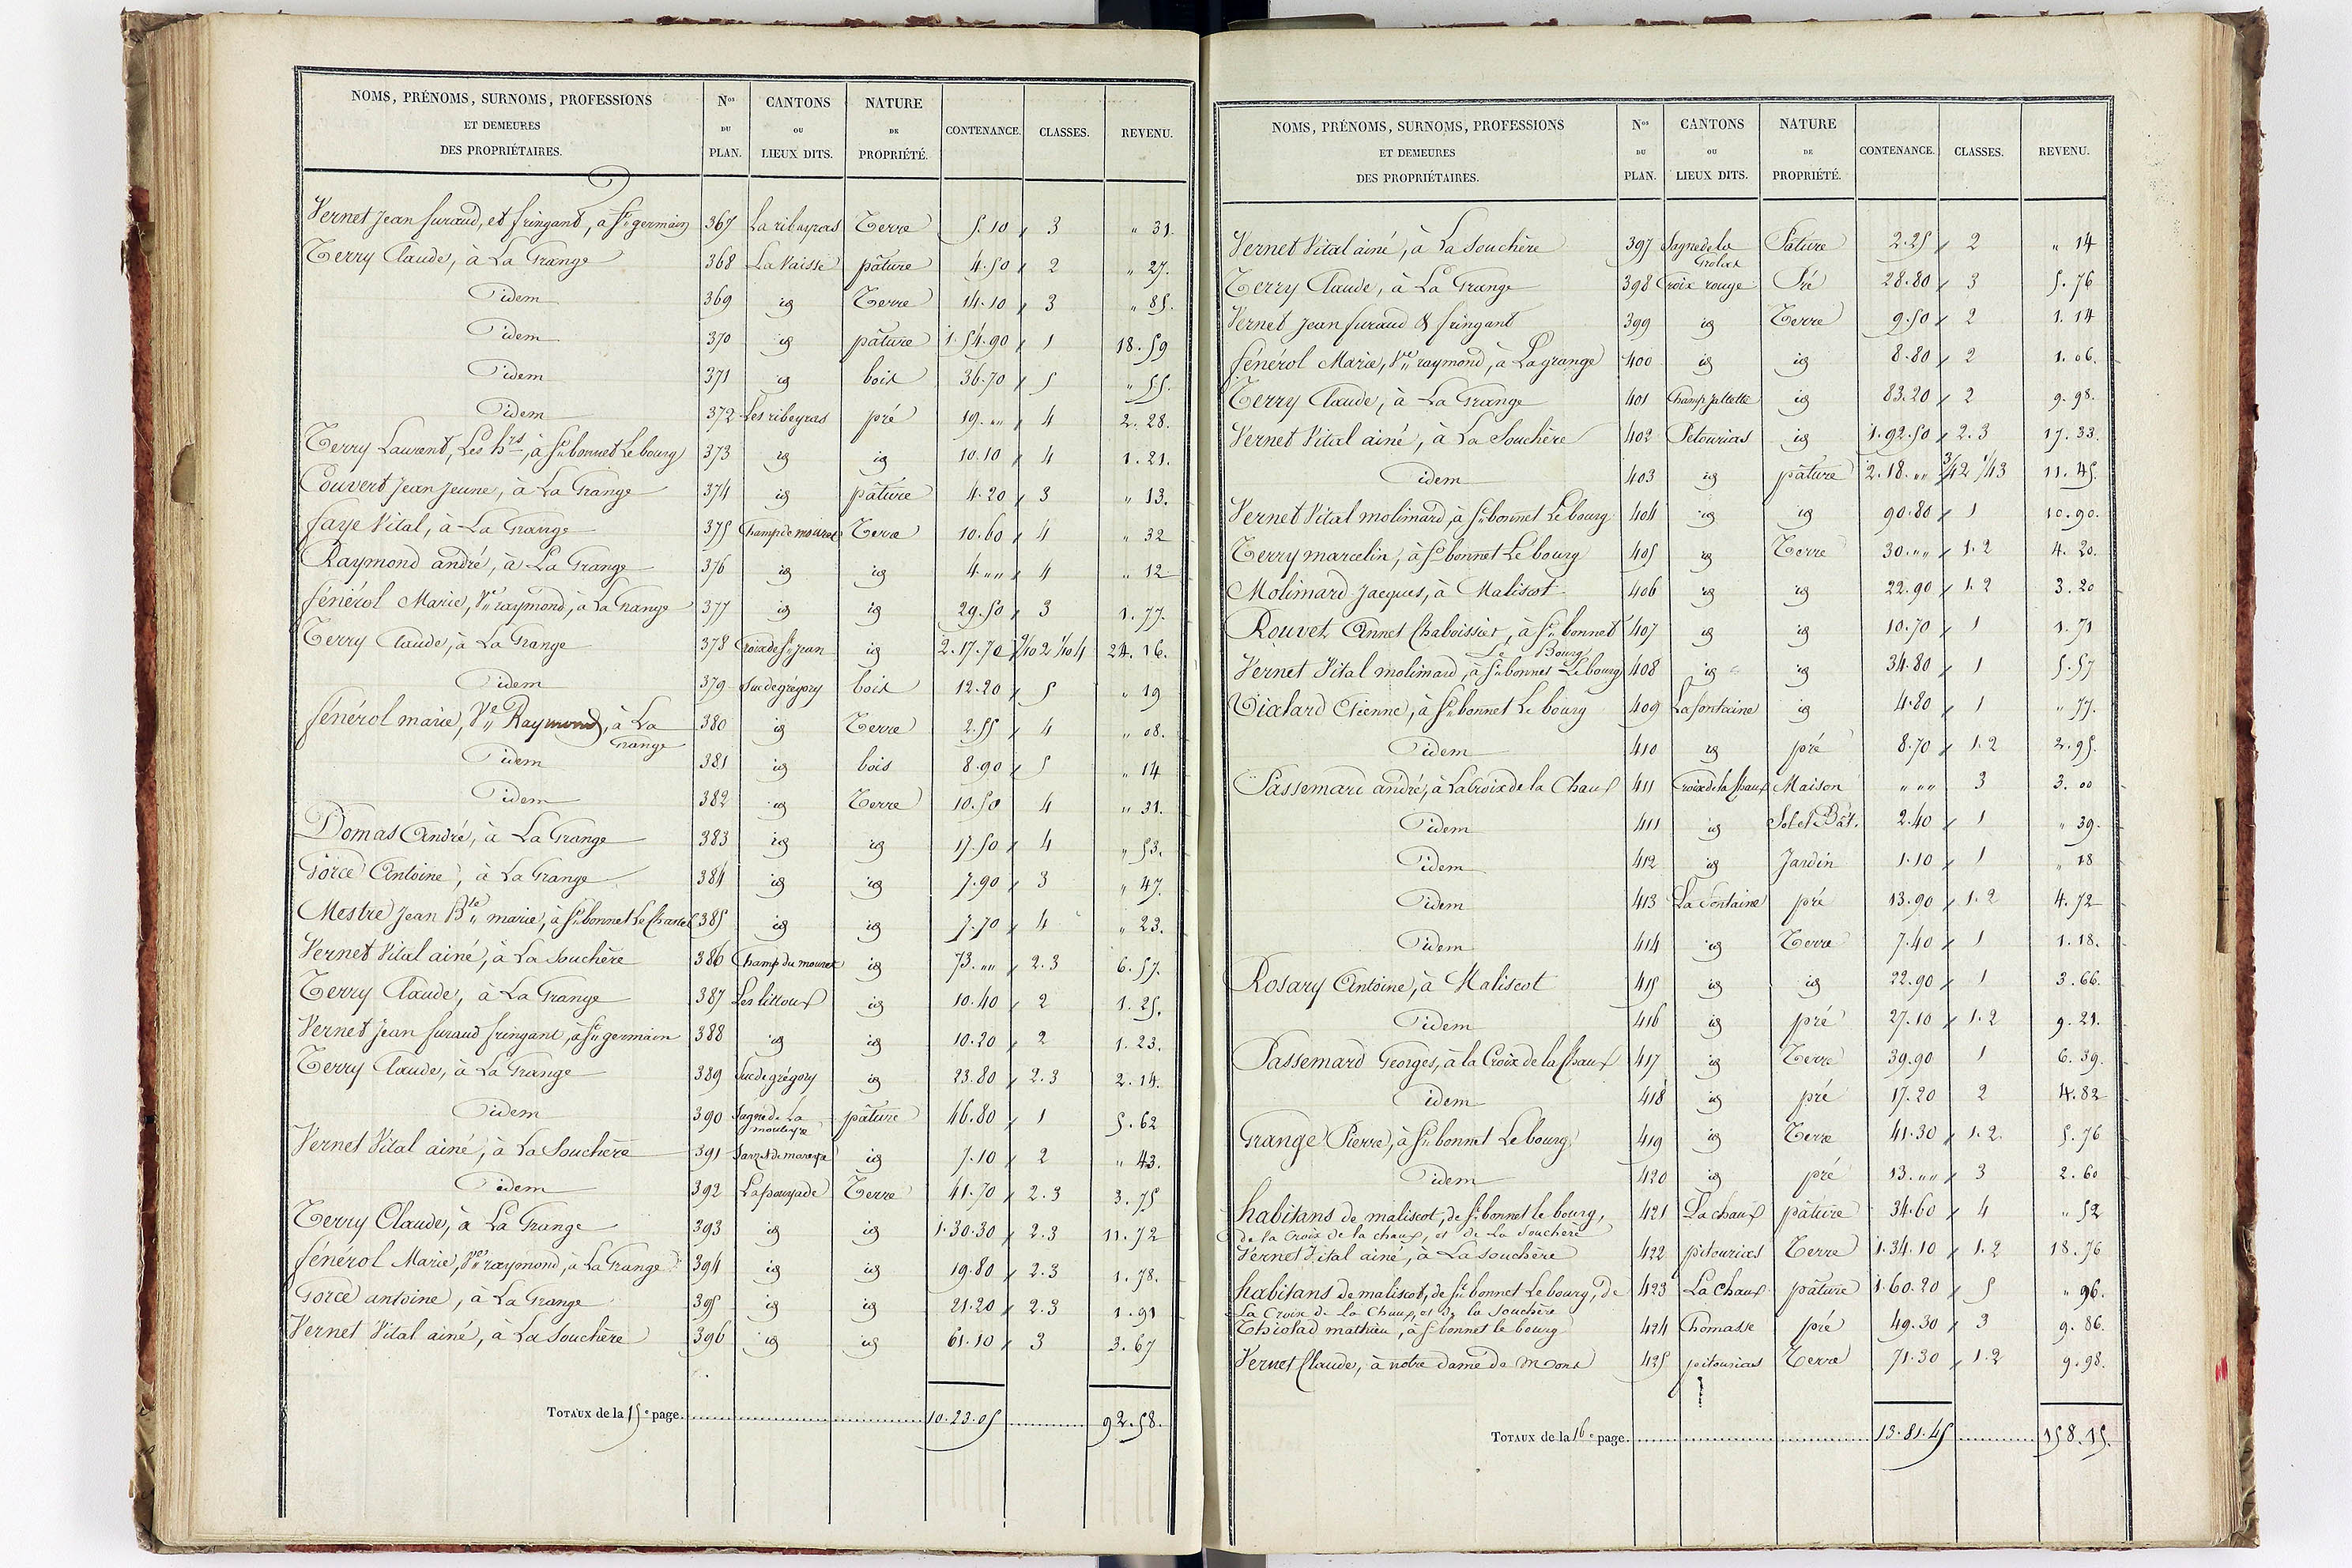 NOMS, PRÉNOMS, SURNOMS, PROFESSIONS ET DEMEURES DES PROPRIÉTAIRES. Nos DU PLAN. CANTONS OU LIEUX DITS. NATURE DE PROPRIÉTÉ. CONTENANCE. CLASSES. REVENU.
Vernet Jean furaud, et fringant, à St germain 367 La ribeyras Terre 5.10 3 " 31.
Terry Claude, à La Grange 368 La Vaisse pâture 4.50 2 " 27.
idem 369 id Terre 14.10 3 " 85.
idem 370 id pâture 1.54.90 1 18.59
idem 371 id bois 36.70 5 " 55.
idem 372 Les ribeyras pré 19. "" 4 2.28.
Terry Laurent, Les hrs, à St bonnet Le bourg 373 id id 10.10 4 1.21.
Couvert Jean Jeune, à La Grange 374 id pâture 4.20 3 " 13.
faye Vital, à La Grange 375 Champ de mouret Terre 10.60 4 " 32
Raymond andré, à La Grange 376 id id 4. "" 4 " 12
fénérol Marie, Ve raymond, à La Grange 377 id id 29.50 3 1.77.
Terry Claude, à La Grange 378 Croix de St Jean id 2.17.70 9/10 2 1/10 4 24.16.
idem 379 Suc de grégory bois 12.20 5 " 19
fénérol marie, Ve Raymond, à La Grange 380 id Terre 2.55 4 " 08.
idem 381 id bois 8.90 5 " 14
idem 382 id Terre 10.50 4 " 31.
Domas André, à La Grange 383 id id 17.50 4 " 53.
Gorce Antoine, à La Grange 384 id id 7.90 3 " 47.
Mestre Jean Bte marie, à St bonnet Le Chastel 385 id id 7.70 4 " 23.
Vernet Vital ainé, à La Souchère 386 Champ du mouret id 73. "" 2.3 6.57.
Terry Claude, à La Grange 387 Les littoux id 10.40 2 1.25.
Vernet Jean furaud fringant, à St germain 388 id id 10.20 2 1.23.
Terry Claude, à La Grange 389 Suc de grégory id 23.80 2.3 2.14.
idem 390 Sagne de La pâture 46.80 1 5.62
Vernet Vital ainé, à La Souchère 391 id 7.10 2 " 43.
idem 392 La pouyade Terre 41.70 2.3 3.75
Terry Claude, à La Grange 393 id id 1.30.30 2.3 11.72
fénérol Marie, Ve raymond, à La Grange 394 id id 19.80 2.3 1.78.
Gorce antoine, à La Grange 395 id id 21.20 2.3 1.91
Vernet Vital ainé, à La Souchère 396 id id 61.10 3 3.67
TOTAUX de la 15e page. 10.23.05 92.58.
NOMS, PRÉNOMS, SURNOMS, PROFESSIONS ET DEMEURES DES PROPRIÉTAIRES. Nos DU PLAN. CANTONS OU LIEUX DITS. NATURE DE PROPRIÉTÉ. CONTENANCE. CLASSES. REVENU.
Vernet Vital ainé, à La Souchère 397 Sagne de la Pature 2.25 2 " 14
Terry Claude, à La Grange 398 Croix rouge Pré 28.80 3 5.76
Vernet Jean furaud & fringant 399 id Terre 9.50 2 1.14
fénérol Marie, Ve raymond, à La grange 400 id id 8.80 2 1.06.
Terry Claude, à La Grange 401 id 83.20 2 9.98.
Vernet Vital ainé, à La Souchère 402 Petourias id 1.92.50 2.3 17.33.
idem 403 id pâture 2.18. "" 3/4 2 1/4 3 11.45.
Vernet Vital molimard, à St bonnet Le bourg 404 id id 90.80 1 10.90.
Terry marcelin, à St bonnet Le bourg 405 id Terre 30. "" 1.2 4.20.
Molimard Jacques, à Maliscot 406 id id 22.90 1.2 3.20
Rouvet Annet Chaboissier, à St bonnet Le Bourg 407 id id 10.70 1 1.71
Vernet Vital molimard, à St bonnet Le bourg 408 id id 34.80 1 5.57
Vialard Etienne, à St bonnet Le bourg 409 La fontaine id 4.80 1 " 77.
idem 410 id pré 8.70 1.2 2.95.
Passemard andré, à La Croix de la Chaux 411 Croix de la Chaux Maison " " " 3 3.00
idem 411 id Sol et Bât. 2.40 1 " 39.
idem 412 id Jardin 1.10 1 " 18
idem 413 La fontaine pré 13.90 1.2 4.72
idem 414 id Terre 7.40 1 1.18.
Rosary Antoine, à Maliscot 415 id id 22.90 1 3.66.
idem 416 id pré 27.10 1.2 9.21.
Passemard Georges, à la Croix de la Chaux 417 id Terre 39.90 1 6.39.
idem 418 id pré 17.20 2 4.82
Grange Pierre, à St bonnet Le bourg 419 id Terre 41.30 1.2. 5.76
idem 420 id pré 13. "" 3 2.60
habitans de maliscot, de St bonnet le bourg, 421 La chaux pâture 34.60 4 " 52
de la Croix de la chaux, et de La Souchère
Vernet Vital ainé, à La Souchère 422 pitourias Terre 1.34.10 1.2 18.76
habitans de maliscot, de St bonnet Le bourg, de 423 La Chaux pâture 1.60.20 5 " 96.
La Croix de la Chaux, et de la Souchère
Thiolad mathieu, à St bonnet le bourg 424 Chomasse pré 49.30 3 9.86.
Vernet Claude, à notre dame de mons 425 pitourias Terre 71.30 1.2 9.98.
TOTAUX de la 16e page. 13.81.45 158.15.